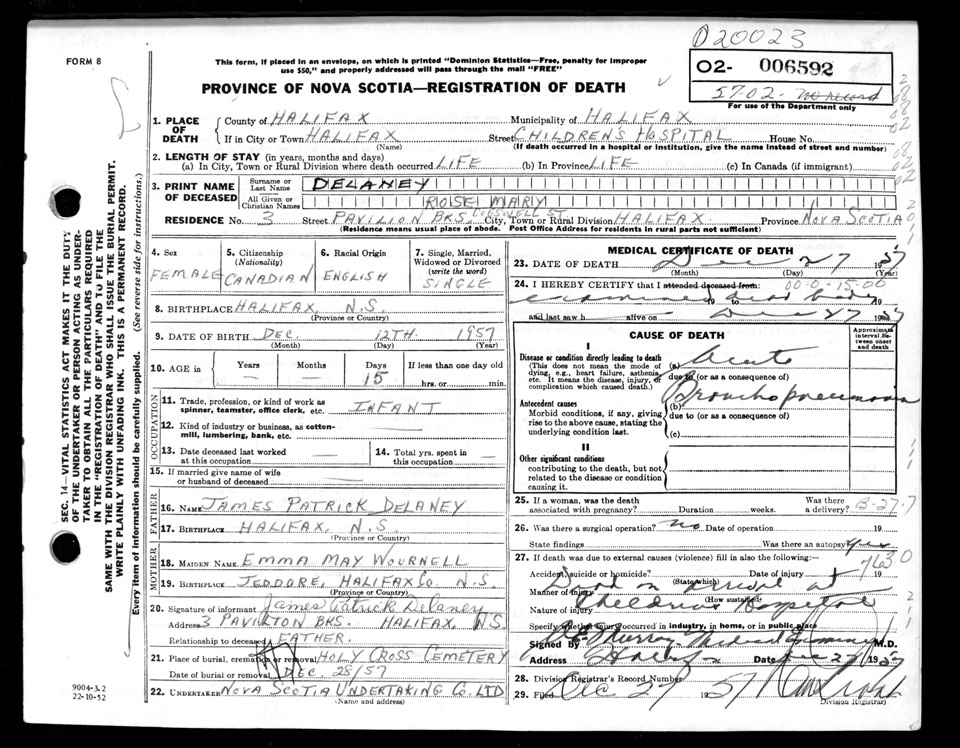 020023
FORM 8
This form, if placed in an envelope, on which is printed "Dominion Statistics—Free, penalty for improper
use $50," and properly addressed will pass through the mail "FREE"
02- 006592
57-02- no record
For use of the Department only
PROVINCE OF NOVA SCOTIA—REGISTRATION OF DEATH
SEC. 14—VITAL STATISTICS ACT MAKES IT THE DUTY
OF THE UNDERTAKER OR PERSON ACTING AS UNDER-
TAKER TO OBTAIN ALL THE PARTICULARS REQUIRED
IN THE "REGISTRATION OF DEATH" AND TO FILE THE
SAME WITH THE DIVISION REGISTRAR WHO SHALL ISSUE THE BURIAL PERMIT.
WRITE PLAINLY WITH UNFADING INK. THIS IS A PERMANENT RECORD.
Every item of information should be carefully supplied. (See reverse side for instructions.)
1. PLACE OF DEATH
County of HALIFAX Municipality of HALIFAX
If in City or Town HALIFAX Street CHILDREN'S HOSPITAL House No.
(Name) (If death occurred in a hospital or institution, give the name instead of street and number)
2. LENGTH OF STAY (in years, months and days)
(a) In City, Town or Rural District where death occurred LIFE (b) In Province LIFE (c) In Canada (if immigrant)
3. PRINT NAME OF DECEASED
Surname or Last Name DELANEY
All Given or Christian Names ROSE MARY
RESIDENCE No. 3 Street PAVILION BKS. COGSWELL ST City, Town or Rural Division HALIFAX. Province NOVA SCOTIA
(Residence means usual place of abode. Post Office Address for residents in rural parts not sufficient)
4. Sex
FEMALE
5. Citizenship (Nationality)
CANADIAN
6. Racial Origin
ENGLISH
7. Single, Married, Widowed or Divorced (write the word)
SINGLE
8. BIRTHPLACE HALIFAX, N.S.
(Province or Country)
9. DATE OF BIRTH DEC. 12TH. 1957
(Month) (Day) (Year)
10. AGE in
Years Months Days If less than one day old
— — 15 hrs. or min.
OCCUPATION
11. Trade, profession, or kind of work as
spinner, teamster, office clerk, etc. INFANT
12. Kind of industry or business, as cotton-
mill, lumbering, bank, etc. —
13. Date deceased last worked
at this occupation —
14. Total yrs. spent in
this occupation —
15. If married give name of wife
or husband of deceased —
FATHER
16. NAME JAMES PATRICK DELANEY
17. BIRTHPLACE HALIFAX, N.S.
(Province or Country)
MOTHER
18. MAIDEN NAME EMMA MAY WOURNELL
19. BIRTHPLACE JEDDORE, HALIFAX Co. N.S.
(Province or Country)
20. Signature of informant James Patrick Delaney
Address 3 PAVILION BKS. HALIFAX, N.S.
Relationship to deceased FATHER.
21. Place of burial, cremation or removal HOLY CROSS CEMETERY
Date of burial or removal DEC. 28/57
22. UNDERTAKER NOVA SCOTIA UNDERTAKING CO. LTD
(Name and address)
9004-3.2
22-10-52
MEDICAL CERTIFICATE OF DEATH
23. DATE OF DEATH Dec 27 1957
(Month) (Day) (Year)
24. I HEREBY CERTIFY that I attended deceased from: 00-0-15-00
examined 19 to dead body 19
and last saw h alive on Dec 27 1957
CAUSE OF DEATH
Approximate interval between onset and death
I
Disease or condition directly leading to death
(This does not mean the mode of
dying, e.g., heart failure, asthenia,
etc. It means the disease, injury, or
complication which caused death.)
(a) Acute
due to (or as a consequence of)
Antecedent causes
Morbid conditions, if any, giving
rise to the above cause, stating the
underlying condition last.
(b) Bronchopneumonia
due to (or as a consequence of)
(c)
II
Other significant conditions
contributing to the death, but not
related to the disease or condition
causing it.
25. If a woman, was the death
associated with pregnancy? Duration weeks. Was there
a delivery? B-27-7
26. Was there a surgical operation? no Date of operation 19
State findings Was there an autopsy? yes
27. If death was due to external causes (violence) fill in also the following:—
7630
Accident, suicide or homicide? Date of injury 19
(State which)
Manner of injury Dead on arrival at
(How sustained)
Nature of injury Children's Hospital
Specify whether injury occurred in industry, in home, or in public place
Signed by Murray Medical Examiner M.D.
Address Halifax Date Dec 27 1957
28. Division Registrar's Record Number
29. Filed Dec 27 1957
(Division Registrar)